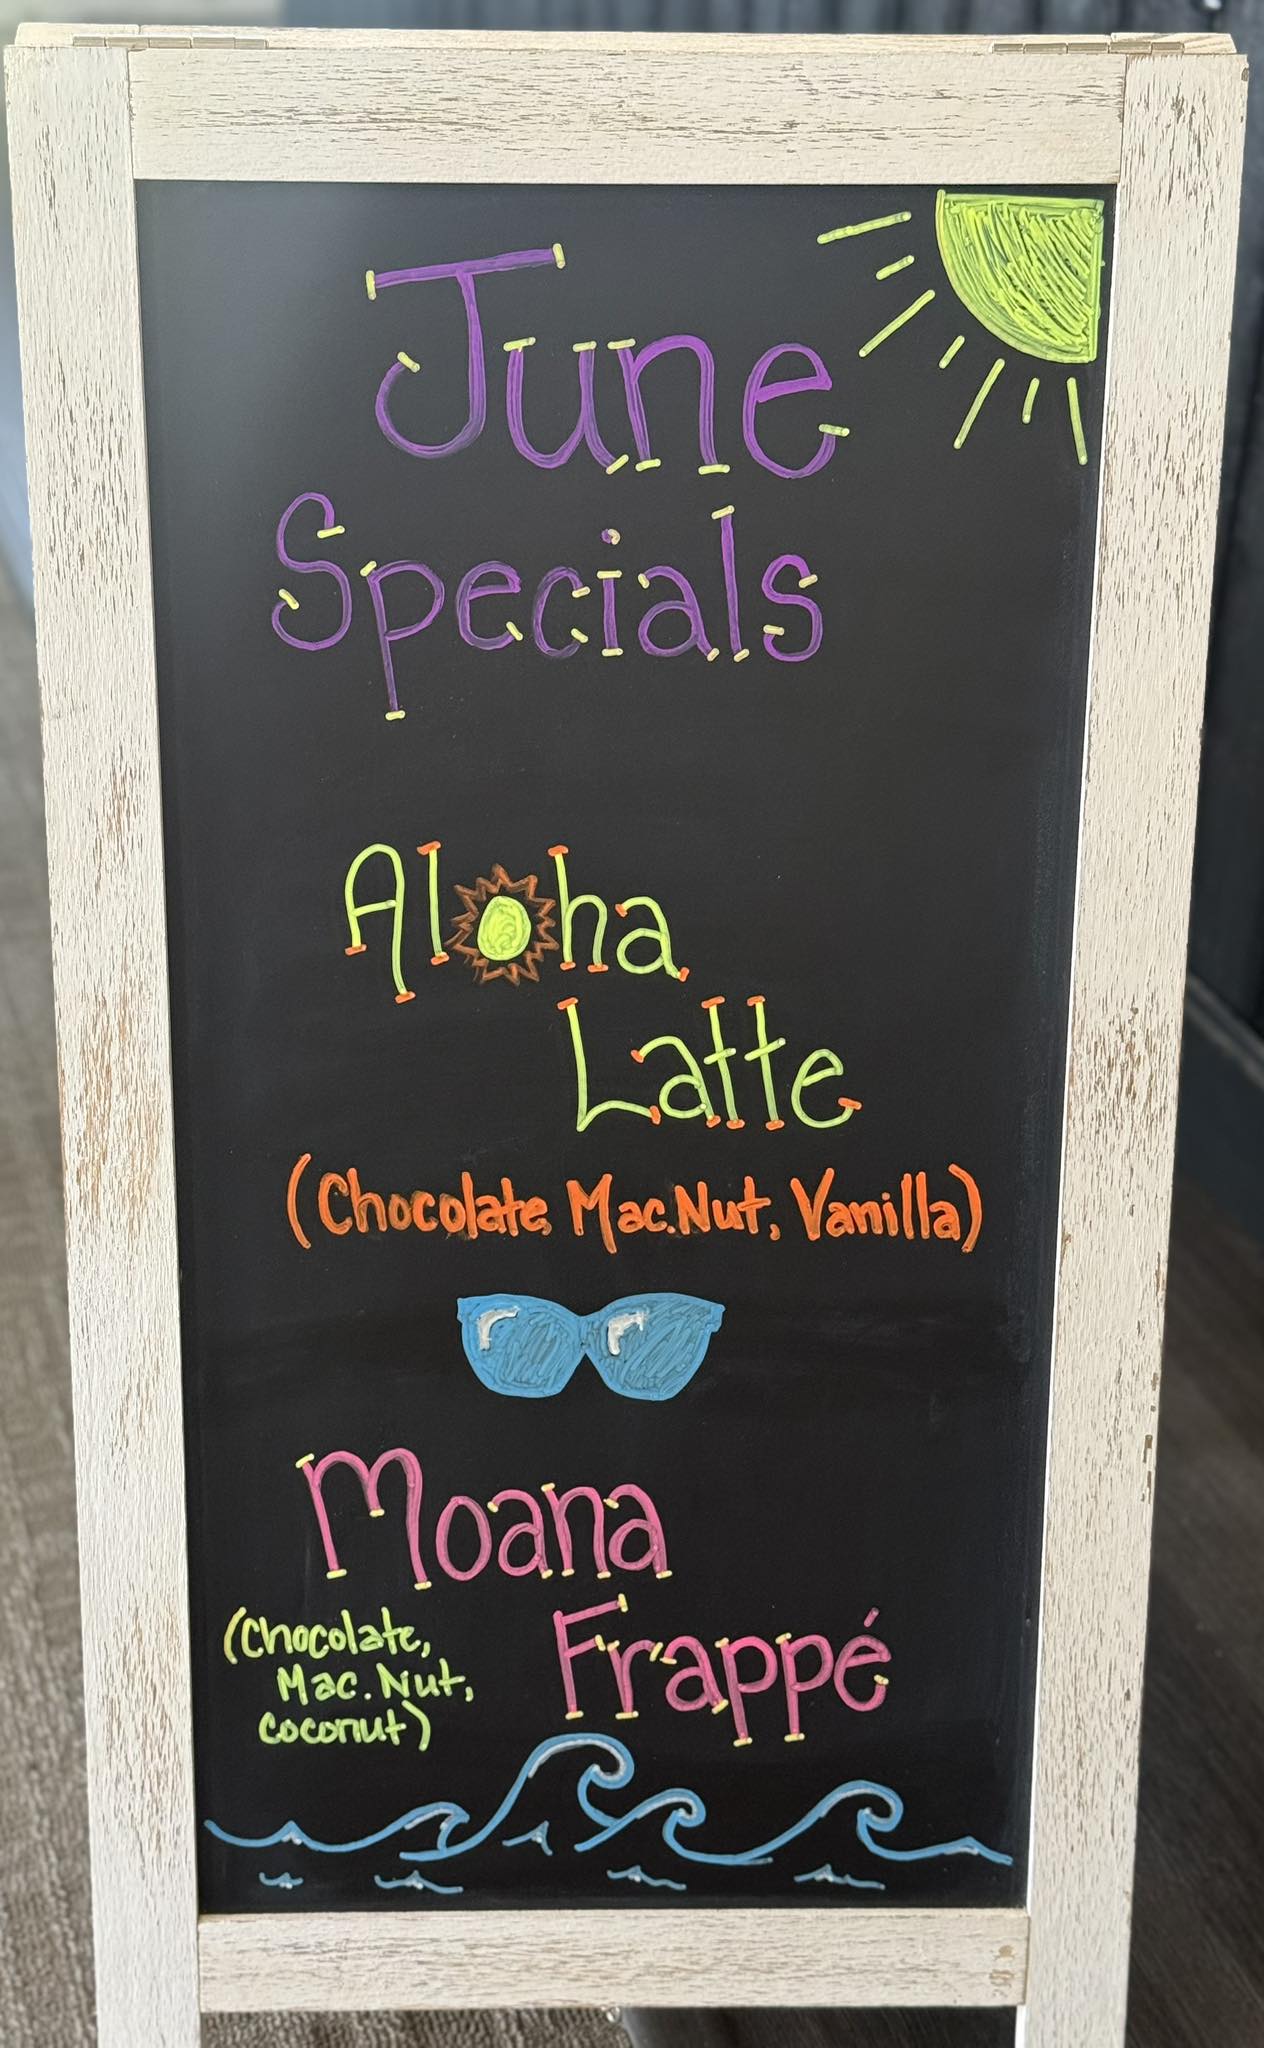 June
Specials
Aloha
Latte
(Chocolate, Mac.Nut, Vanilla)
Moana
Frappé
(Chocolate,
Mac. Nut,
coconut)